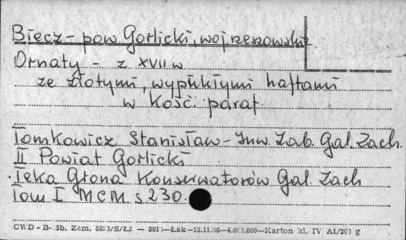 Biecz - pow Gorlicki, woj rzeszowskie
Ornaty - z XVII w
ze złotymi, wypukłymi haftami
w Kość. paraf
Tomkowicz Stanisław - Inw. Zab. Gal. Zach.
II Powiat Gorlicki
Teka Grona Konserwatorów Gal Zach
Tom I MCM. s 230.
CWD - B- 5b. Zam.